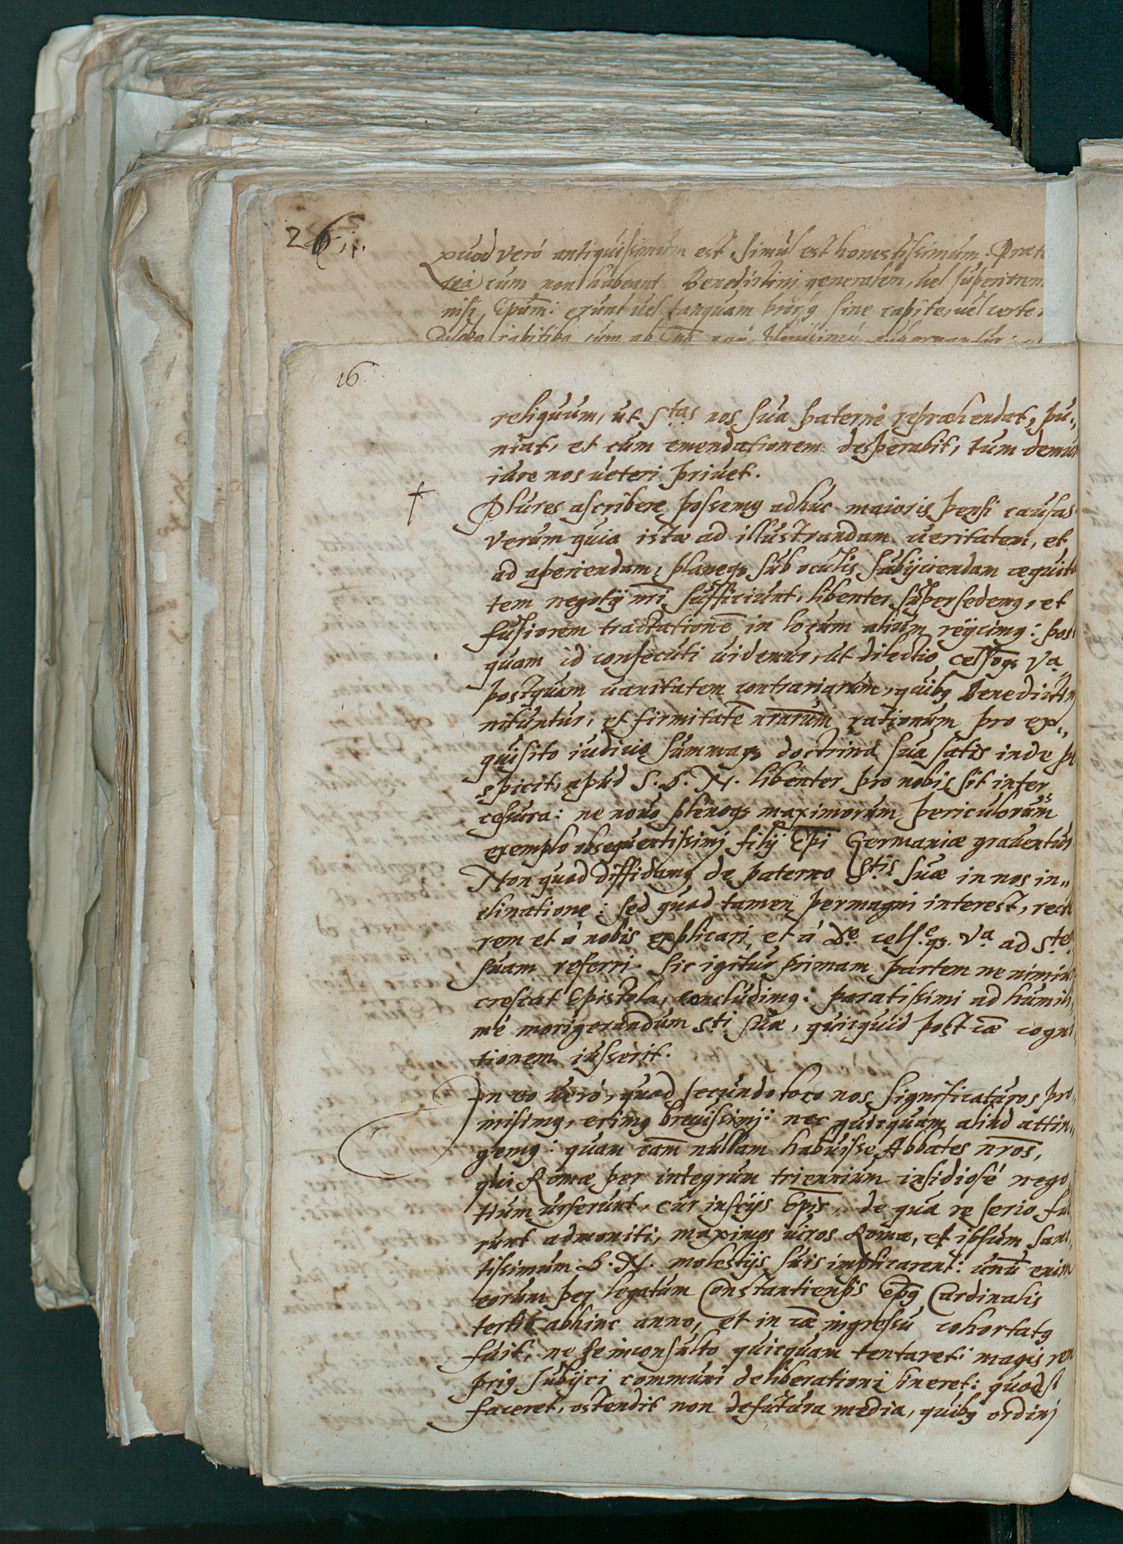 26
quod vero antiquissimum est, simul est honestissimum. Præt
tea cum non habeant Benedictini generalem, vel superiorem
nisi Epūm: erunt vel tanquam sine capite, vel certe
16
reliquum, ut Stas nos sua paterne repræhendat, pu-
niat, et cum emendationem desperabit, tum demū
iure nos veteri privet.
† Plures ascribere possemꝰ adhuc maioris pensi causas
verum quia istæ ad illustrandam veritatem, et
ad aperiendam, planeqꝫ sub oculis subijciendam æquita
tem negotij nrī sufficiunt, libenter supersedemꝰ, et
fusiorem tractationē in locum alium reijcimꝰ: pos
quam id consecuti videmur, ut dilectio, celsqꝫ Va
postquam vanitatem contrariarum, quibꝰ Benedictin
nituntur, et firmitatē nrārum rationum pro ex-
quisito iudicio summaqꝫ doctrina sua satis inde p
spicit, apud S. D. N. libenter pro nobis sit inter
cessura: ne novo plenoqꝫ maximorum periculorum
exemplo obsequentissimj filij Epī Germaniæ graventur
Non quod diffidamꝰ de paterno Stis suæ in nos in-
clinatione: sed quod tamen permagni interest, recte
rem et à nobis explicari, et à De. celse.qꝫ. Va ad Stem
suam referri. Sic igitur primam partem ne nimiū
crescat Epistola, concludimꝰ: paratissimi ad humili
mè morigerandum Sti suæ, quicquid post eā cogni
tionem iusserit.
In eo verò, quod secundo loco nos significaturos pro
misimꝰ, erimꝰ brevissimj: nec quicquam aliud attin-
gemꝰ: quam cām nullam habuisse Abbates nrōs,
qui Romæ per integrum triennium insidiosè nego
tium urserunt, cur inscijs Epīs, de qua re serio fue
runt admoniti, maximos viros Romæ, et ipsum Sanc
tissimum D. N. molestijs suis implicarent: unū enim
eorum per legatum Constantiensis epūs Cardinalis
tertio abhinc anno, et in cæ ingressu cohortatꝰ
fuit, ne se inconsulto quicquam tentaret: magis rem
priꝰ subijci communi deliberationi sineret: quod si
faceret, ostendit non defutura media, quibꝰ ordinj